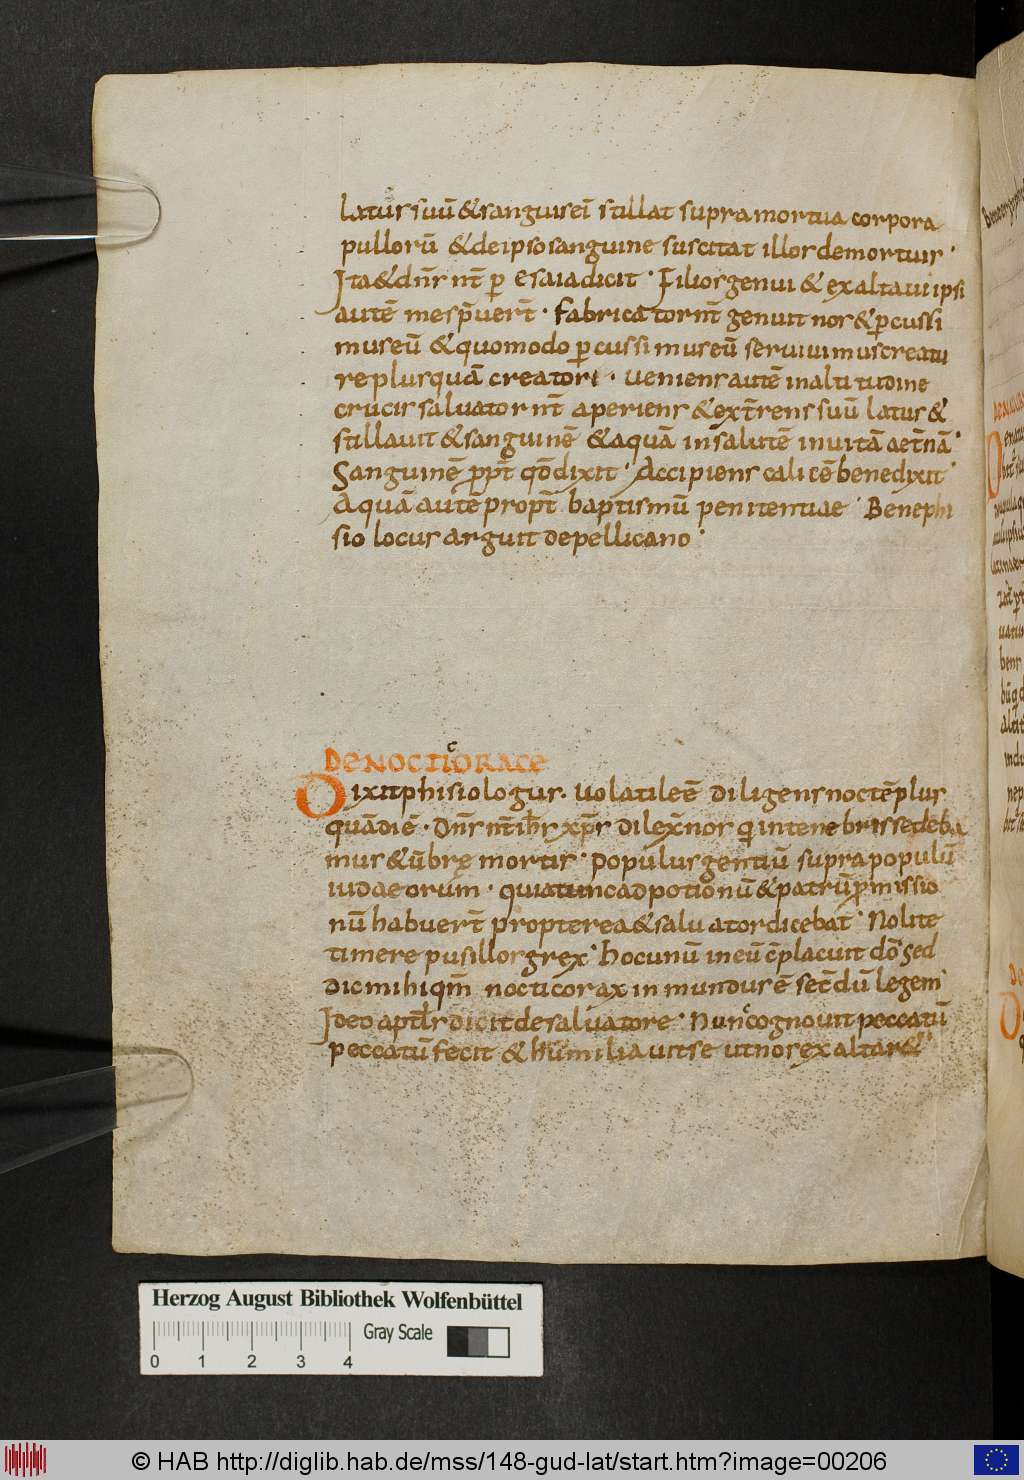 latus suū & sanguis eī stillat supra mortua corpora
pullorū & de ipso sanguine suscitat illos de mortuis ·
Ita & dn̄s nr̄ p esaia dicit · Filios genui & exaltavi ipsi
autē me sp̄uer̄ · fabricator nr̄ genuit nos & pcussi
mus eū & quomodo pcussimus eū servivimus creatu
re plus quā creatori · veniens autē in altitudine
crucis salvator nr̄ aperiens & ext̄rens suū latus &
stillavit & sanguinē & aquā in salutē in vitā aet̄nā ·
Sanguinē ppt̄ qd̄ dixit · Accipiens calicē benedixit ·
Aquā autē propt̄ baptismū penitentiae · Bene phi
sio locus arguit de pellicano ·
DE NOCTICORACE
Dixit phisiologus · volatile ē diligens noctē plus
quā diē · Dn̄s nr̄ ih̄s xp̄s dilex̄ nos qi in tenebris sedeba
mus & ūbrę mortis · populus gentiū supra populū
iudaeorum · quia tunc adpotionū & patrū pmissio
nū habuer̄ propterea & salvator dicebat · Nolite
timere pusillos grex · hoc unū in eū cplacuit dō sed
dic mihi qm̄ nocticorax inmundus ē sec̄dū legem
Ideo aptl̄s dicit de salvatore · Nunc cognovit peccatū
peccatū fecit & humiliavit se ut nos exaltar& ·
Herzog August Bibliothek Wolfenbüttel
Gray Scale
0 1 2 3 4
© HAB http://diglib.hab.de/mss/148-gud-lat/start.htm?image=00206